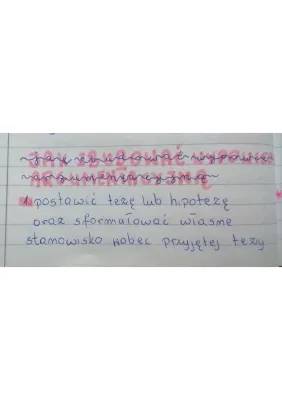 JAK ZBUDOWAĆ
1. postawić tezę lub hipotezę
oraz sformałować własne
stanowisko wobec przyjętej tezy